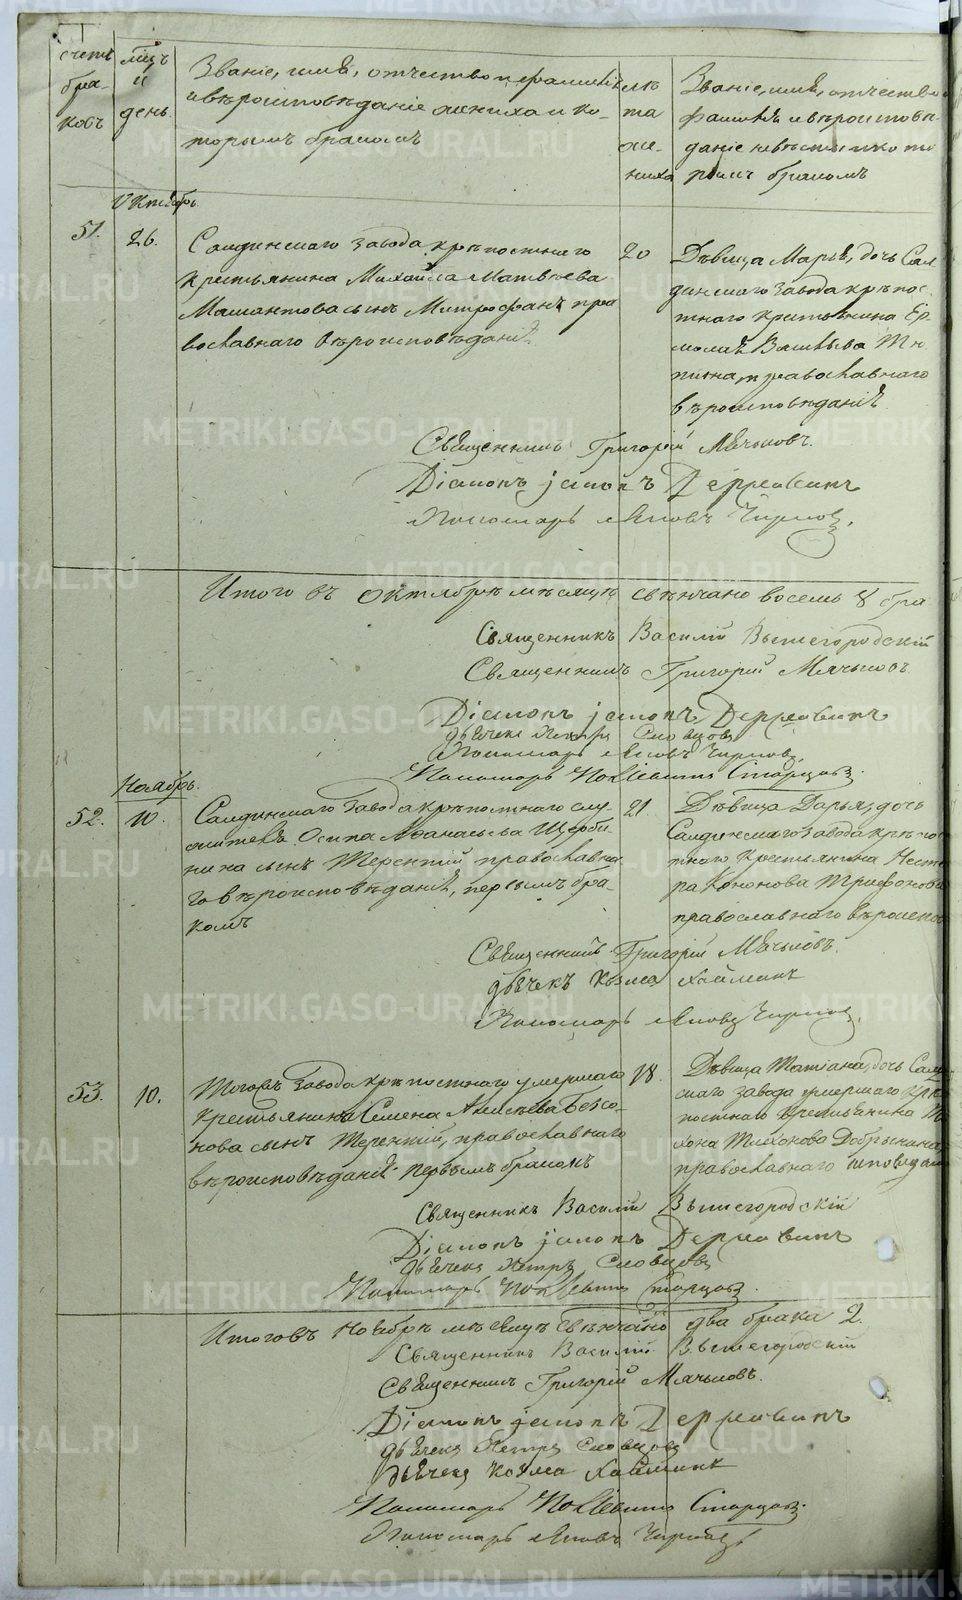 счетъ бра- ковъ
мѣц. и день
Званіе, имя, отчество и фамилія
и вѣроисповѣданіе жениха и ко-
торымъ бракомъ
лѣта жениха
Званіе, имя, отчество и
фамилія и вѣроисповѣ-
даніе невѣсты и кото-
рымъ бракомъ
Октябрь
51.
26.
Салдинскаго завода крѣпостнаго
крестьянина Михайла Матвѣева
Мамантова сынъ Митрофанъ пра
вославнаго вѣроисповѣданія
20
Дѣвица Марья, дочь Сал
динскаго завода крѣпос
тнаго крестьянина Ер
молая Васильева
православнаго
вѣроисповѣданія
Священникъ Григорій Мячковъ.
Діаконъ Державинъ
Пономарь Яковъ Чирковъ.
Итого въ Октябрѣ мѣсяцѣ свѣнчано восемь 8 бра
Священникъ Василій Вышегородскій
Священникъ Григорій Мячковъ
Діаконъ Державинъ
Дьячекъ Петръ Словцовъ
Пономарь Яковъ Чирковъ
Пономарь Старцовъ.
Ноябрь.
52.
10.
Салдинскаго завода крѣпостнаго слу
жителя Осипа Афанасьева Щерби
нина сынъ Терентій православна
го вѣроисповѣданія, первымъ бра-
комъ
21.
Дѣвица Дарья, дочь
Салдинскаго завода крѣпос
тнаго крестьянина Несте
ра Кононова Трифонова
православнаго вѣроиспов
Священникъ Григорій Мячковъ.
Дьячекъ Козма
Пономарь Яковъ Чирковъ.
53.
10.
Тогожъ завода крѣпостнаго умершаго
крестьянина Семена Алексѣева Безсо-
нова сынъ Терентій, православнаго
вѣроисповѣданія первымъ бракомъ
18.
Дѣвица Татіана, дочь Салдин
скаго завода умершаго крѣ
постнаго крестьянина Ти
хона Тихонова Добрынина,
православнаго исповѣдан
Священникъ Василій Вышегородскій
Діаконъ Державинъ
Дьячекъ Петръ Словцовъ
Пономарь Старцовъ.
Итого въ Ноябрѣ мѣсяцѣ свѣнчано два брака 2.
Священникъ Василій Вышегородскій
Священникъ Григорій Мячковъ.
Діаконъ Державинъ
Дьячекъ Петръ Словцовъ
Дьячекъ Козма
Пономарь Старцовъ.
Пономарь Яковъ Чирковъ
METRIKI.GASO-URAL.RU